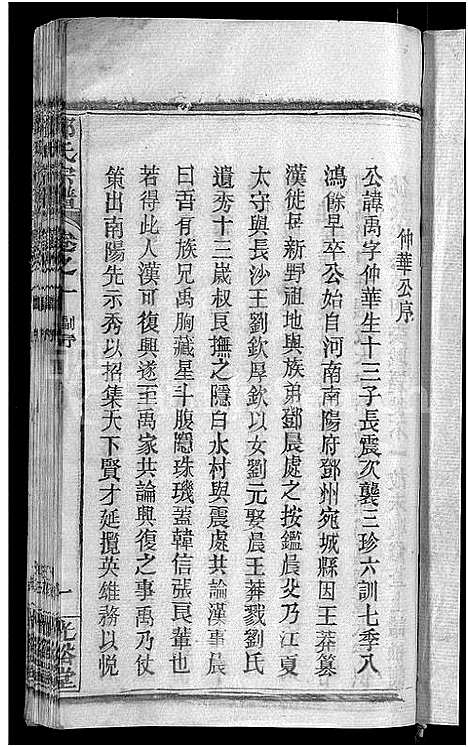 仲華公序
公諱禹字仲華生十三子長震次襲三珍六訓七季八
鴻餘早卒公始自河南南陽府鄧州宛城縣因王莽篡
漢徙居新野祖地與族弟鄧晨處之按鑑晨父乃江夏
太守與長沙王劉欽厚欽以女劉元娶晨王莽戮劉氏
遺秀十三歲叔良撫之隱白水村與震處共論漢事晨
曰吾有族兄禹胸藏星斗腹隱珠璣蓋韓信張良輩也
若得此人漢可復興遂至禹家共論興復之事禹乃仗
策出南陽先示秀以招集天下賢才延攬英雄務以悅
氏宗譜
卷之一
副序
一
光裕堂